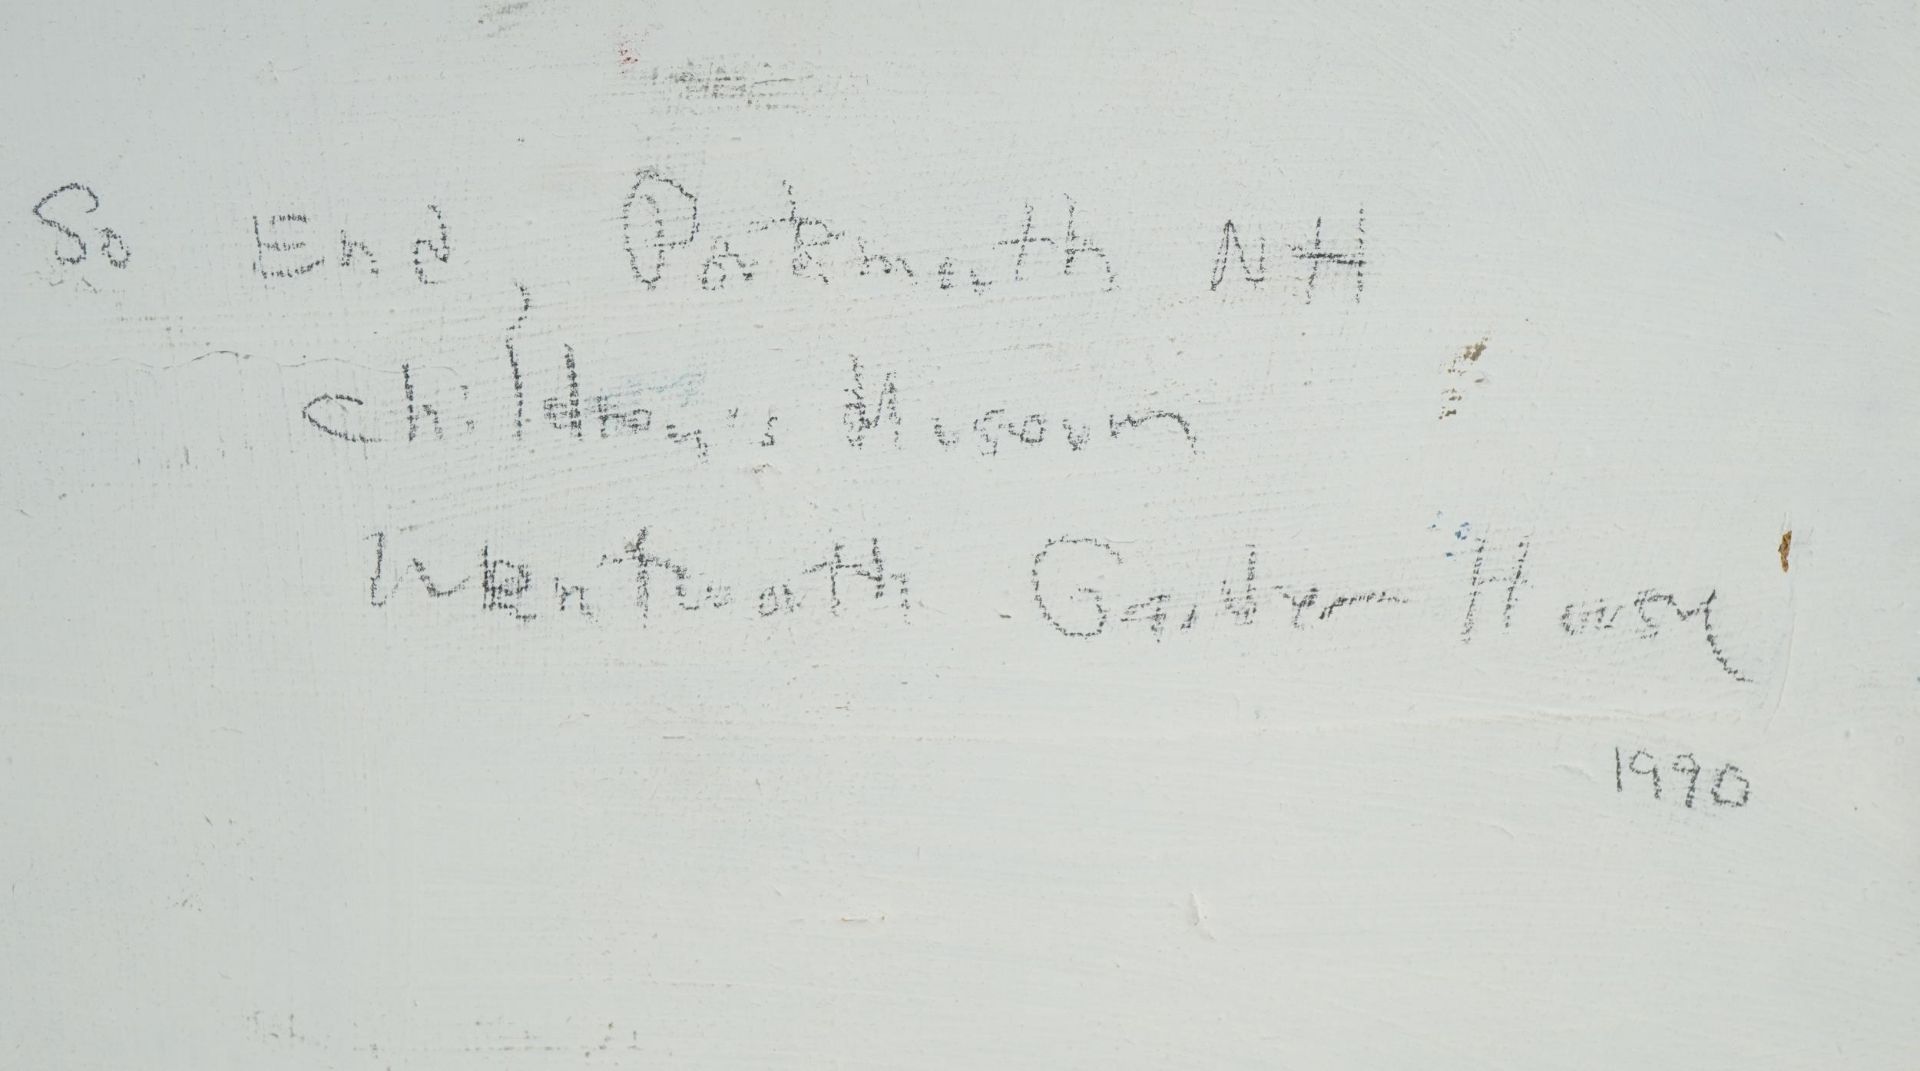 So End Portsmouth NH
Children's Museum
Wentworth Gardner House
1990